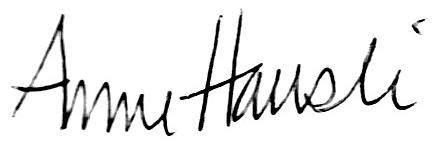 Anne Hauski